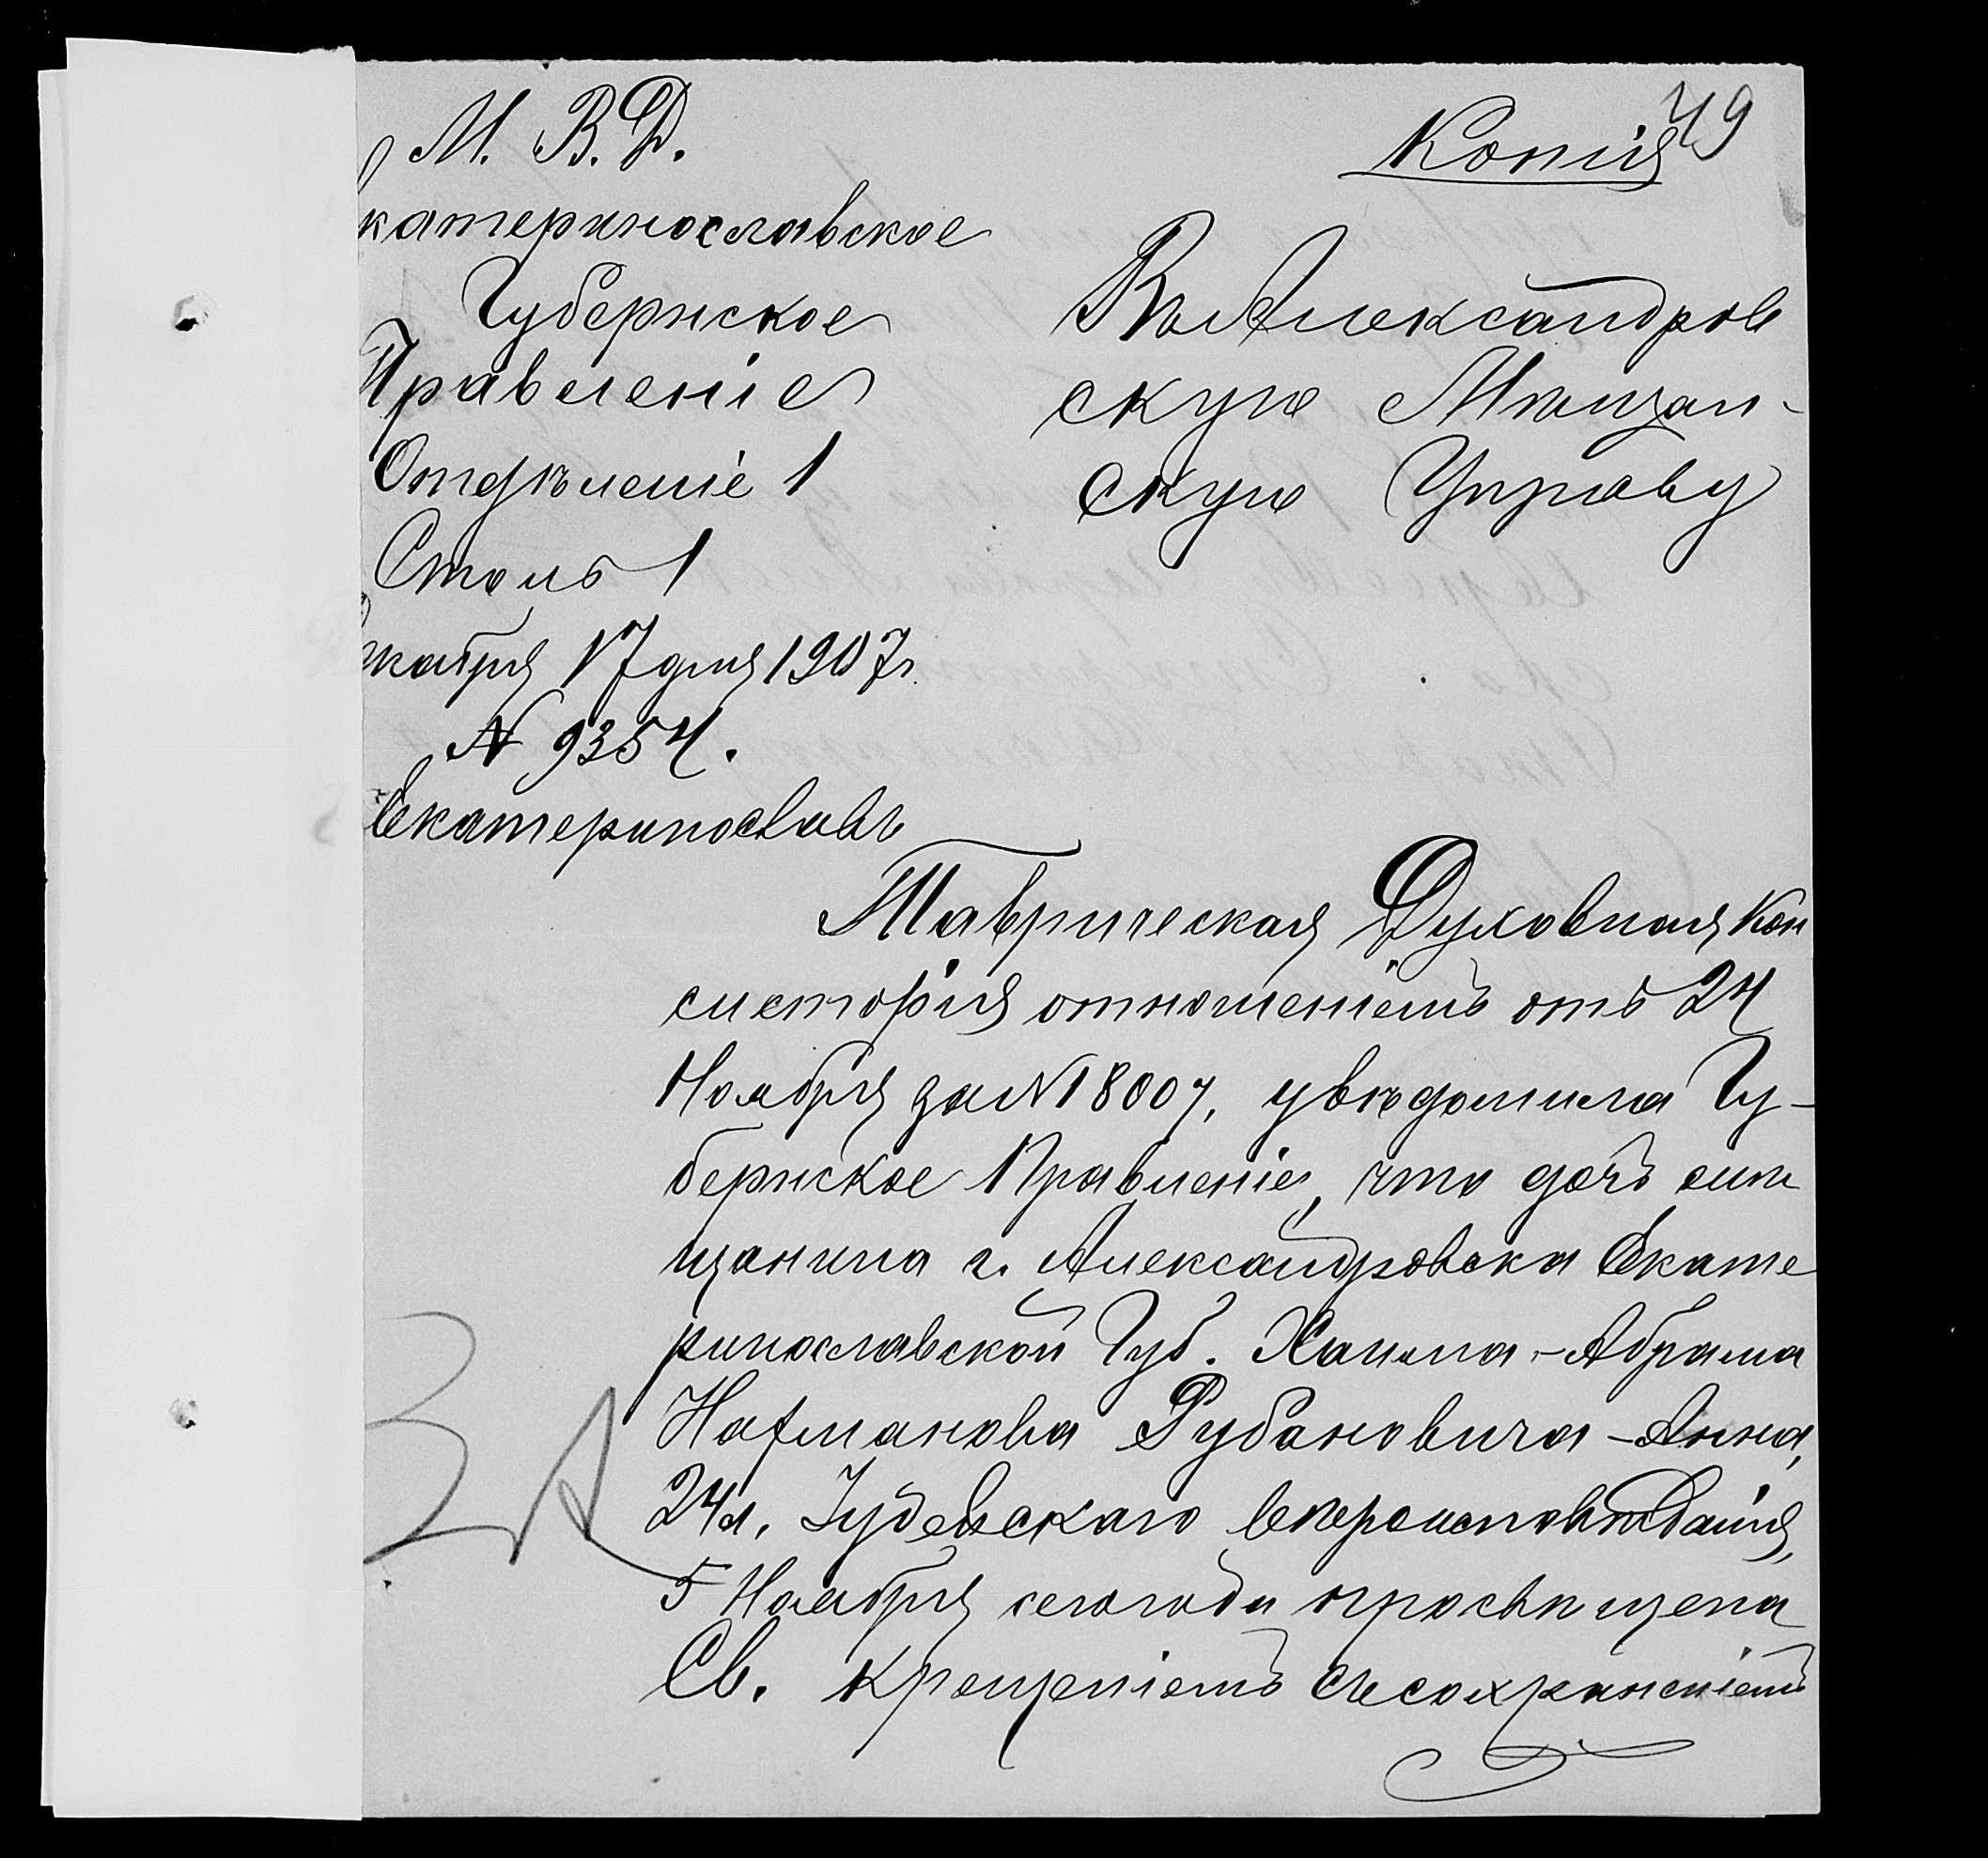 М. В. Д.
Копія
49
катеринославское
Губернское
Правленіе
Отдѣленіе 1
Столъ 1
кабря 17 дня 1907 г.
№ 9354.
Екатеринославъ
Въ Александров
скую Мѣщан-
скую Управу
Таврическая Духовная Кон
систорія отношеніемъ отъ 24
Ноября за № 18007, увѣдомила Гу-
бернское Правленіе, что дочь мѣ
щанина г. Александровска Екате
ринославской Губ. Хаима-Абрама
Нахманова Рубановича - Анна,
24 л. Іудейскаго вѣроисповѣданія,
5 Ноября сего года просвѣщена
Св. Крещеніемъ съ сохраненіемъ